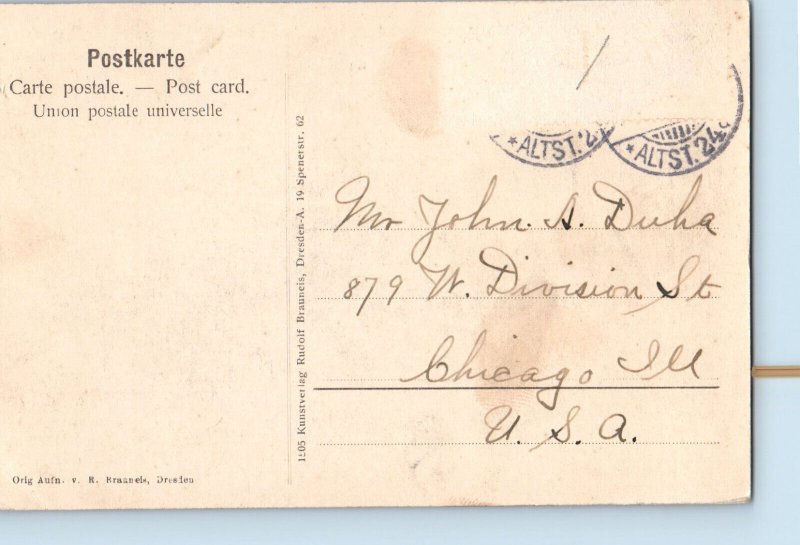 Postkarte
Carte postale. — Post card.
Union postale universelle
1905 Kunstverlag Rudolf Brauneis, Dresden-A. 19 Spenerstr. 62
Orig Aufn. v. R. Brauneis, Dresden
*ALTST. 24
*ALTST. 24
Mr John. A. Duha
879 W. Division St
Chicago Ill
U. S. A.